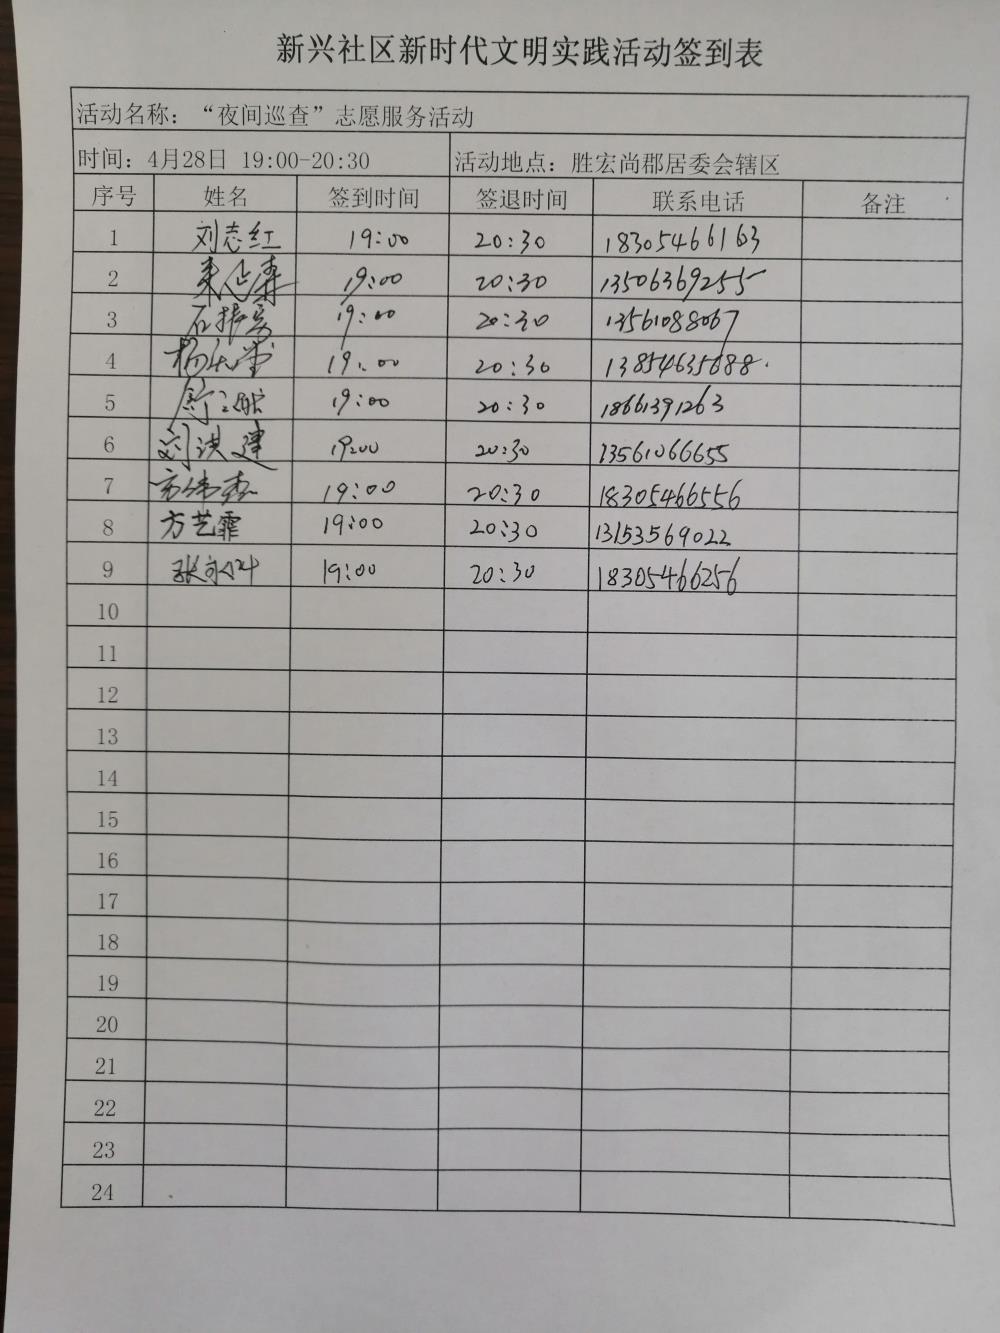 新兴社区新时代文明实践活动签到表
活动名称：“夜间巡查”志愿服务活动
时间：4月28日 19:00-20:30 活动地点：胜宏尚郡居委会辖区
序号 姓名 签到时间 签退时间 联系电话 备注
1 刘志红 19:00 20:30 18305466163
2 19:00 20:30 13506369255
3 19:00 20:30 13561088067
4 19:00 20:30 13854635688
5 19:00 20:30 18661391263
6 刘洪建 19:00 20:30 13561066655
7 19:00 20:30 18305466556
8 方艺霏 19:00 20:30 13153569022
9 19:00 20:30 18305466256
10
11
12
13
14
15
16
17
18
19
20
21
22
23
24